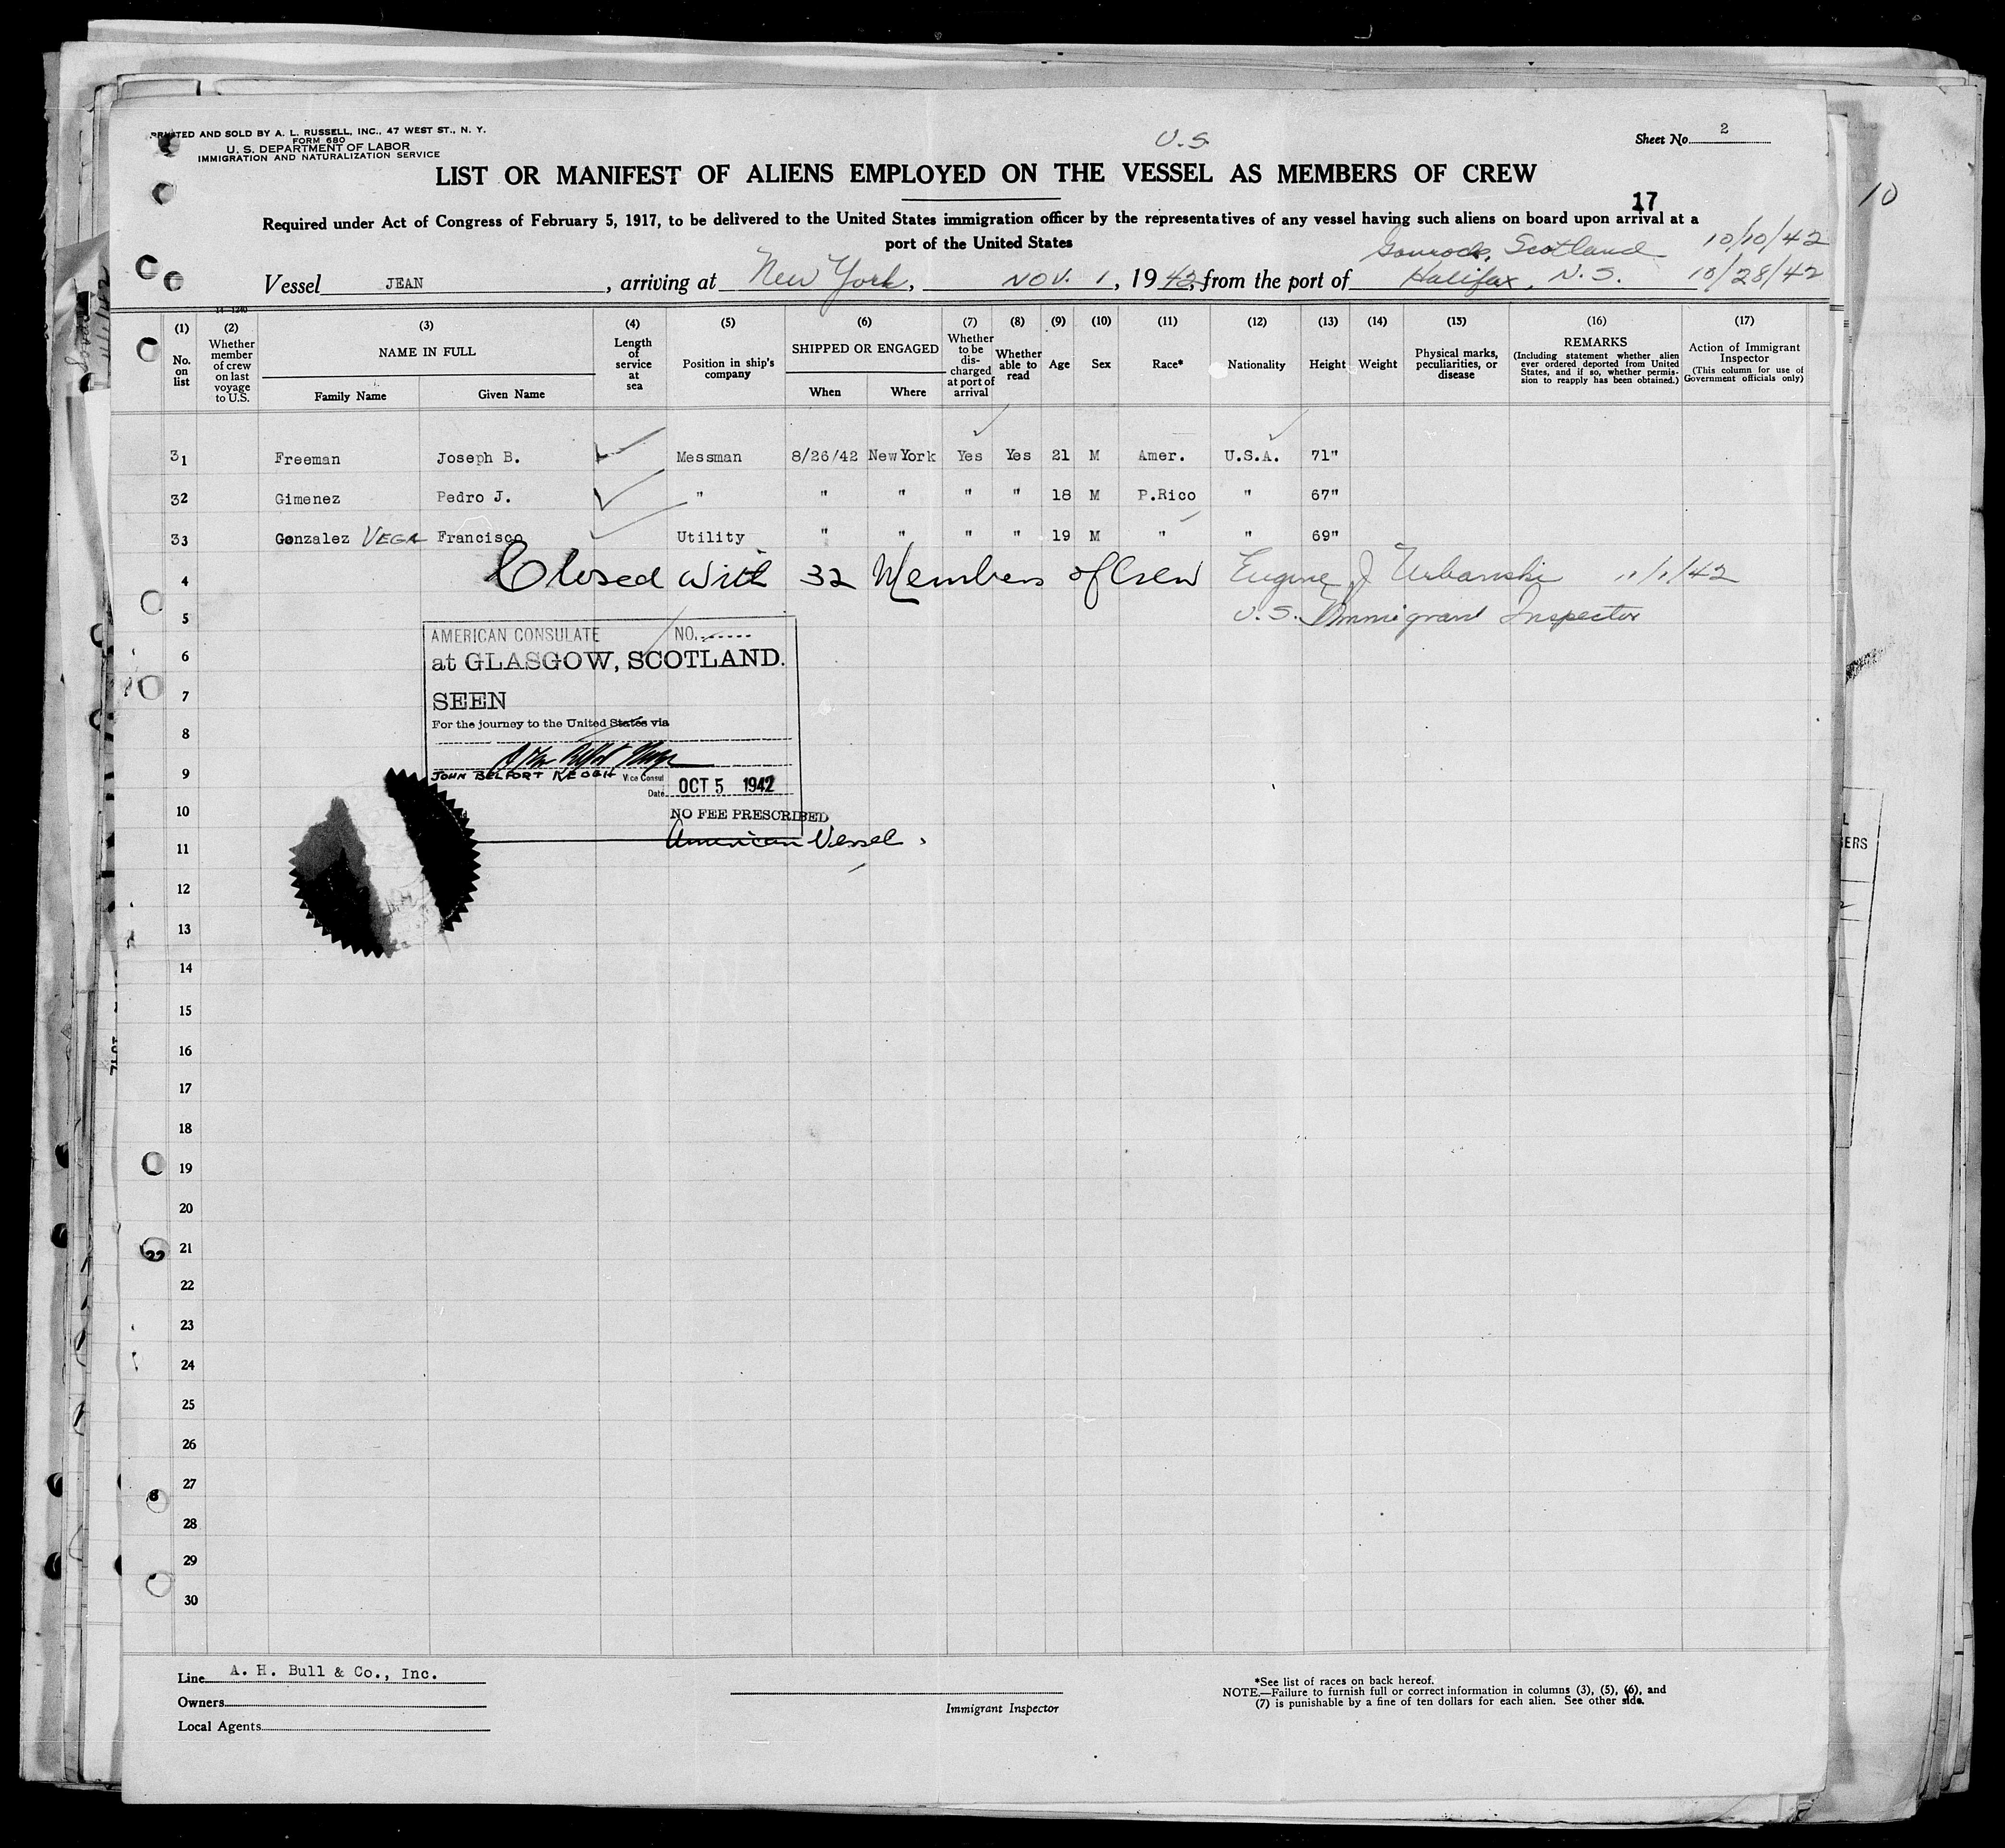 PRINTED AND SOLD BY A. L. RUSSELL, INC., 47 WEST ST., N. Y.
FORM 680
U. S. DEPARTMENT OF LABOR
IMMIGRATION AND NATURALIZATION SERVICE
U.S.
Sheet No. 2
LIST OR MANIFEST OF ALIENS EMPLOYED ON THE VESSEL AS MEMBERS OF CREW
17
10
Required under Act of Congress of February 5, 1917, to be delivered to the United States immigration officer by the representatives of any vessel having such aliens on board upon arrival at a
port of the United States
Gourock, Scotland 10/10/42
Vessel JEAN, arriving at New York, Nov. 1, 1942, from the port of Halifax, N.S. 10/28/42
14-1240
(1) No. on list
(2) Whether member of crew on last voyage to U.S.
(3) NAME IN FULL
Family Name
Given Name
(4) Length of service at sea
(5) Position in ship's company
(6) SHIPPED OR ENGAGED
When
Where
(7) Whether to be discharged at port of arrival
(8) Whether able to read
(9) Age
(10) Sex
(11) Race*
(12) Nationality
(13) Height
(14) Weight
(15) Physical marks, peculiarities, or disease
(16) REMARKS (Including statement whether alien ever ordered deported from United States, and if so, whether permission to reapply has been obtained.)
(17) Action of Immigrant Inspector (This column for use of Government officials only)
31 Freeman Joseph B. Messman 8/26/42 New York Yes Yes 21 M Amer. U.S.A. 71"
32 Gimenez Pedro J. " " " " " 18 M P.Rico " 67"
33 Gonzalez VEGA Francisco Utility " " " " 19 M " " 69"
4 Closed with 32 Members of Crew Eugene J Urbanski 11/1/42
5 U.S. Immigrant Inspector
AMERICAN CONSULATE NO.
at GLASGOW, SCOTLAND.
SEEN
For the journey to the United States via
JOHN BELFORT KEOGH Vice Consul
Date OCT 5 1942
NO FEE PRESCRIBED
American Vessel.
6
7
8
9
10
11
12
13
14
15
16
17
18
19
20
21
22
23
24
25
26
27
28
29
30
Line A. H. Bull & Co., Inc.
Owners
Local Agents
Immigrant Inspector
*See list of races on back hereof.
NOTE.—Failure to furnish full or correct information in columns (3), (5), (6), and
(7) is punishable by a fine of ten dollars for each alien. See other side.